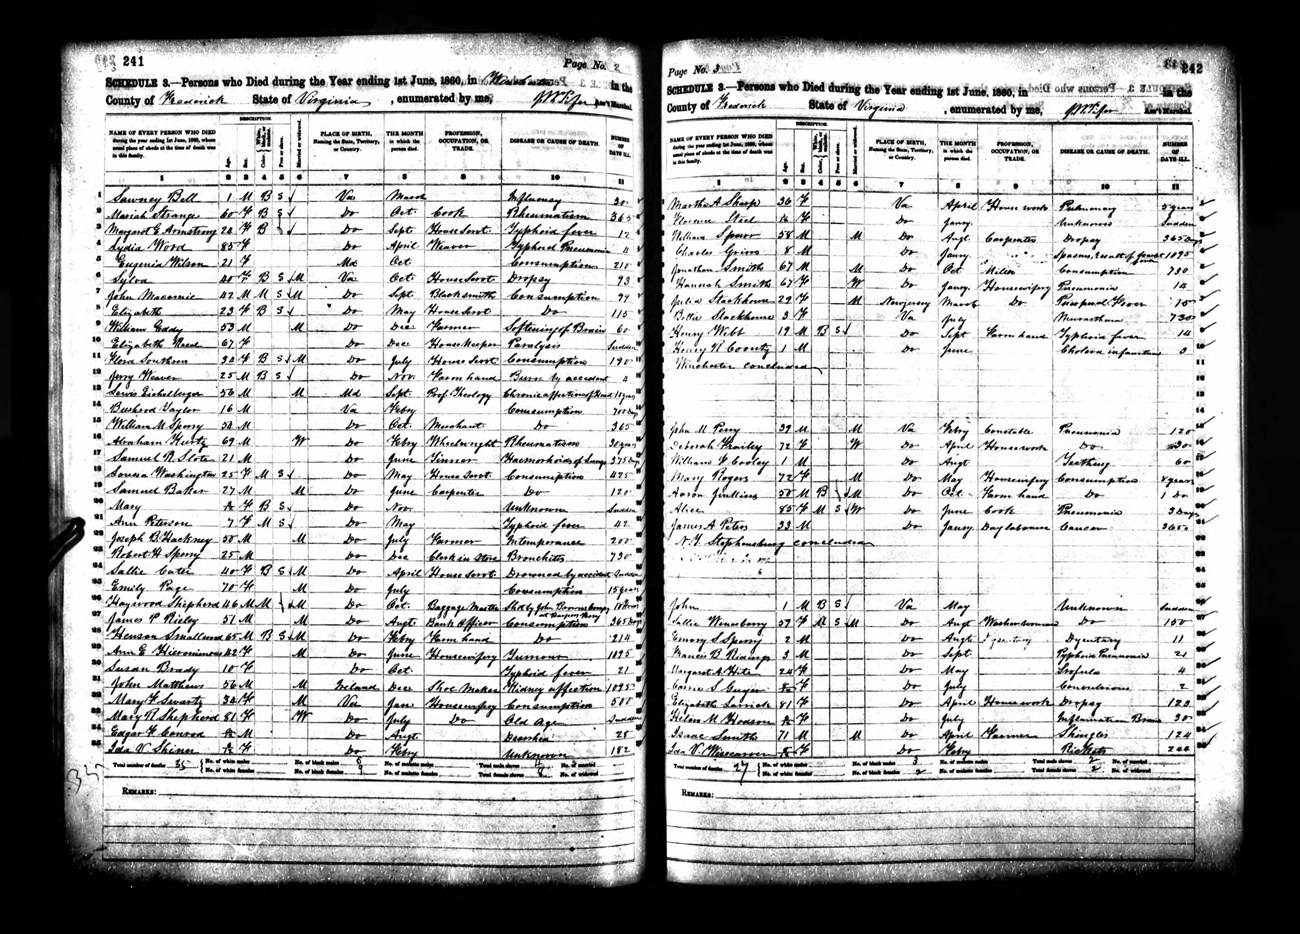 241
Page No. 2
SCHEDULE 3.—Persons who Died during the Year ending 1st June, 1860, in Winchester in the
County of Frederick State of Virginia, enumerated by me, Ass't Marshal.
NAME OF EVERY PERSON WHO DIED during the year ending 1st June, 1860, whose usual place of abode at the time of death was in this family.
DESCRIPTION.
Age. Sex. Free or slave. Married or widowed.
PLACE OF BIRTH, Naming the State, Territory, or Country.
THE MONTH in which the person died.
PROFESSION, OCCUPATION, OR TRADE.
DISEASE OR CAUSE OF DEATH.
NUMBER OF DAYS ILL.
1 2 3 4 5 6 7 8 9 10 11
1 Sawney Bell 1 M B S Va March Influenza 20
2 Mariah Strange 60 F B S Do Oct Cook Rheumatism 365
3 Margaret E Armstrong 24 F B Do Sept House Servt Typhoid fever 12
4 Lydia Word 85 F Do April Weaver Typhoid Pneumonia 11
5 Eugenia Wilson 21 F Md Oct Consumption 210
6 Sylva 40 F B S M Va Oct House Servt Dropsy 93
7 John 42 M M S M Do Sept Blacksmith Consumption 99
8 Elizabeth 23 F B S Do May House Servt Do 115
9 William Eddy 53 M M Do Dec Farmer Softening of Brain 60
10 Elizabeth Reed 67 F Do Dec House Keeper Paralysis Sudden
11 Flora Southern 34 F B S M Do July House Servt Consumption 190
12 Jerry Weaver 25 M B S Do Nov Farm hand Burn by accident 4
13 Lewis Eichelberger 56 M M Md Sept Prof. Theology Chronic affection of Head
14 Bushrod Taylor 16 M Va Feby Consumption 700 Days
15 William M Sperry 34 M Do Oct Merchant Do 365
16 Abraham Kurtz 69 M W Do Feby Wheelwright Rheumatism 30 years
17 Samuel R. Slote 21 M Do June Tinner Haemorhoids of Lungs 375 Days
18 Louisa Washington 25 F M S Do May House Servt Consumption 425
19 Samuel Baker 27 M M Do June Carpenter Do 120
20 Mary F B S Do Nov Unknown Sudden
21 Ann Peterson 7 F M S Do May Typhoid fever 42
22 Joseph B. Hackney 50 M M Do July Farmer Intemperance 200
23 Robert H Sperry 25 M Do Dec Clerk in Store Bronchites 730
24 Sallie Cater 40 F B S M Do April House Servt Drowned by accident Sudden
25 Emily Page 70 F M Do July Consumption 15 years
26 Haywood Shepherd 46 M M M Do Oct Baggage Master Shot by John Browns Comp'y at Harpers Ferry 18 Hours
27 James P Rieley 51 M M Do Augt Bank Officer Consumption 365 Days
28 Henson Smallwood 65 M B S M Do Feby Farm hand Do 214
29 Ann E Hieronimous 42 F M Do June Housewifery Tumour 1095
30 Susan Brady 10 F Do Oct Typhoid fever 21
31 John Matthews 56 M M Ireland Dec Shoe Maker Kidney affection 1095
32 Mary F Swartz 34 F M Va Jan Housewifery Consumption 500
33 Mary R Shepherd 81 F W Do July Do Old Age Sudden
34 Edgar F Conrad M Do Augt Diarrhea 28
35 Ida V Shiner F Do Feby Unknown 182
Total number of deaths 35 No. of white males No. of white females No. of black males 8 No. of black females 9 No. of mulatto males No. of mulatto females Total male slaves Total female slaves 8 No. of married No. of widowed
REMARKS:
Page No. 3
242
SCHEDULE 3.—Persons who Died during the Year ending 1st June, 1860, in in the
County of Frederick State of Virginia, enumerated by me, Ass't Marshal.
NAME OF EVERY PERSON WHO DIED during the year ending 1st June, 1860, whose usual place of abode at the time of death was in this family.
DESCRIPTION.
Age. Sex. Free or slave. Married or widowed.
PLACE OF BIRTH, Naming the State, Territory, or Country.
THE MONTH in which the person died.
PROFESSION, OCCUPATION, OR TRADE.
DISEASE OR CAUSE OF DEATH.
NUMBER OF DAYS ILL.
1 2 3 4 5 6 7 8 9 10 11
Martha A Sharp 36 F Va April House work Pulmonary 5 years
Florence Steel F Do Jany Unknown Sudden
William Spurr 58 M M Do Augt Carpenter Dropsy 365 Days
Charles Grim 8 M Do Jany 1095
Jonathan Smith 67 M M Do Oct Miller Consumption 730
Hannah Smith 67 F W Do Jany Housewifery Pneumonia 14
Julia Stackhouse 29 F M New jersey March Do Puerperal Fever 15
Bettie Stackhouse 3 F Va July Marasthma 730
Henry Webb 19 M B S Do Sept Farm hand Typhoid fever 14
Henry R Coonty 1 M Do June Cholera infantum 3
Winchester concluded
John M Perry 39 M M Va Feby Constable Pneumonia 120
Deborah Frailey 72 F W Do April Housework Do 30
William F Cooley 1 M Do Augt Teething 60
Mary Rogers 72 F M Do May Housewifery Consumption 8 years
Aaron Jenkins 50 M B M Do Oct Farm hand Do 1 Do
Alice 85 F M S W Do June Cook Pneumonia 3 Days
James A Peters 33 M Do Jany Day laborer Cancer 365
N. T. Stephensburg concluded
John 1 M B S Va May Unknown Sudden
Sallie Wensberry 59 F M S M Do Augt Washerwoman Do 150
Emory S Sperry 2 M Do Augt Dysentary 11
Frances B Ridings 3 M Do Sept Typhoid Pneumonia 21
Margaret A Hite 24 F Do May Scrofula 4
James S Guyer Do July Convulsions 2
Elizabeth Larrick 81 F Do April Housework Dropsy 123
Helen M Hodson F Do July Inflamation Brain 30
Isaac Smith 71 M M Do April Farmer Shingles 124
Ida V. Wisecarver F Do Feby Rickets 244
Total number of deaths 27 No. of white males No. of white females No. of black males 3 No. of black females 2 No. of mulatto males No. of mulatto females Total male slaves 2 Total female slaves 2 No. of married No. of widowed
REMARKS: